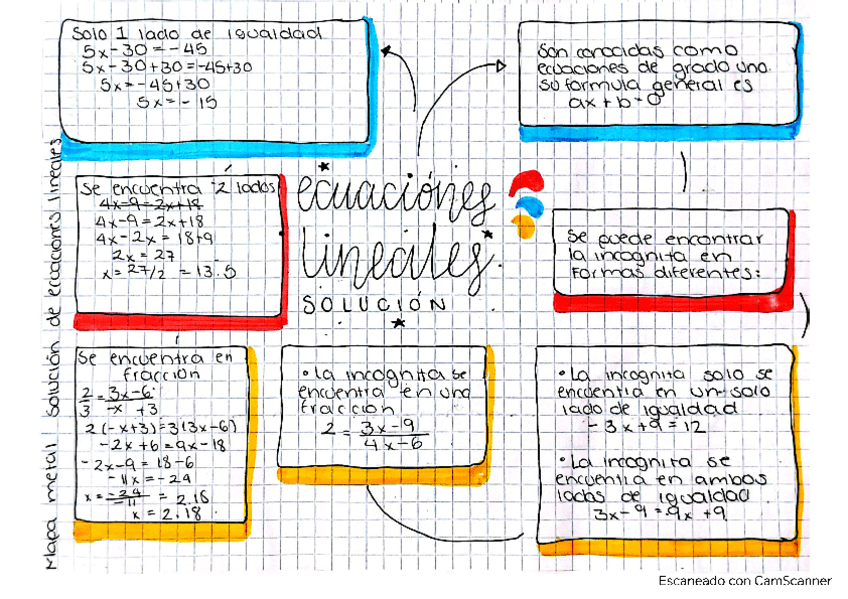 Solo 1 lado de igualdad
5x-30=-45
5x-30+30=-45+30
5x=-45+30
5x=-15
Son conocidas como
ecuaciones de grado uno.
Su formula general es
ax+b=0
Se encuentra 2 lados
4x-9=2x+18
4x-9=2x+18
4x-2x=18+9
2x=27
x=27/2 =13.5
ecuaciónes
lineales.
SOLUCIÓN
Se puede encontrar
la incognita en
formas diferentes:
Se encuentra en
fracción
2/3=3x-6/-x+3
2(-x+3)=3(3x-6)
-2x+6=9x-18
-2x-9=18-6
-11x=-24
x=-24/-11 = 2.18
x=2.18
• La incognita se
encuentra en una
fracción
2=3x-9/4x-6
• La incognita solo se
encuentra en un solo
lado de igualdad
-3x+9=12
• La incognita se
encuentra en ambos
lados de igualdad
3x-9=9x+9
Mapa metal Solución de ecuaciones lineales
Escaneado con CamScanner